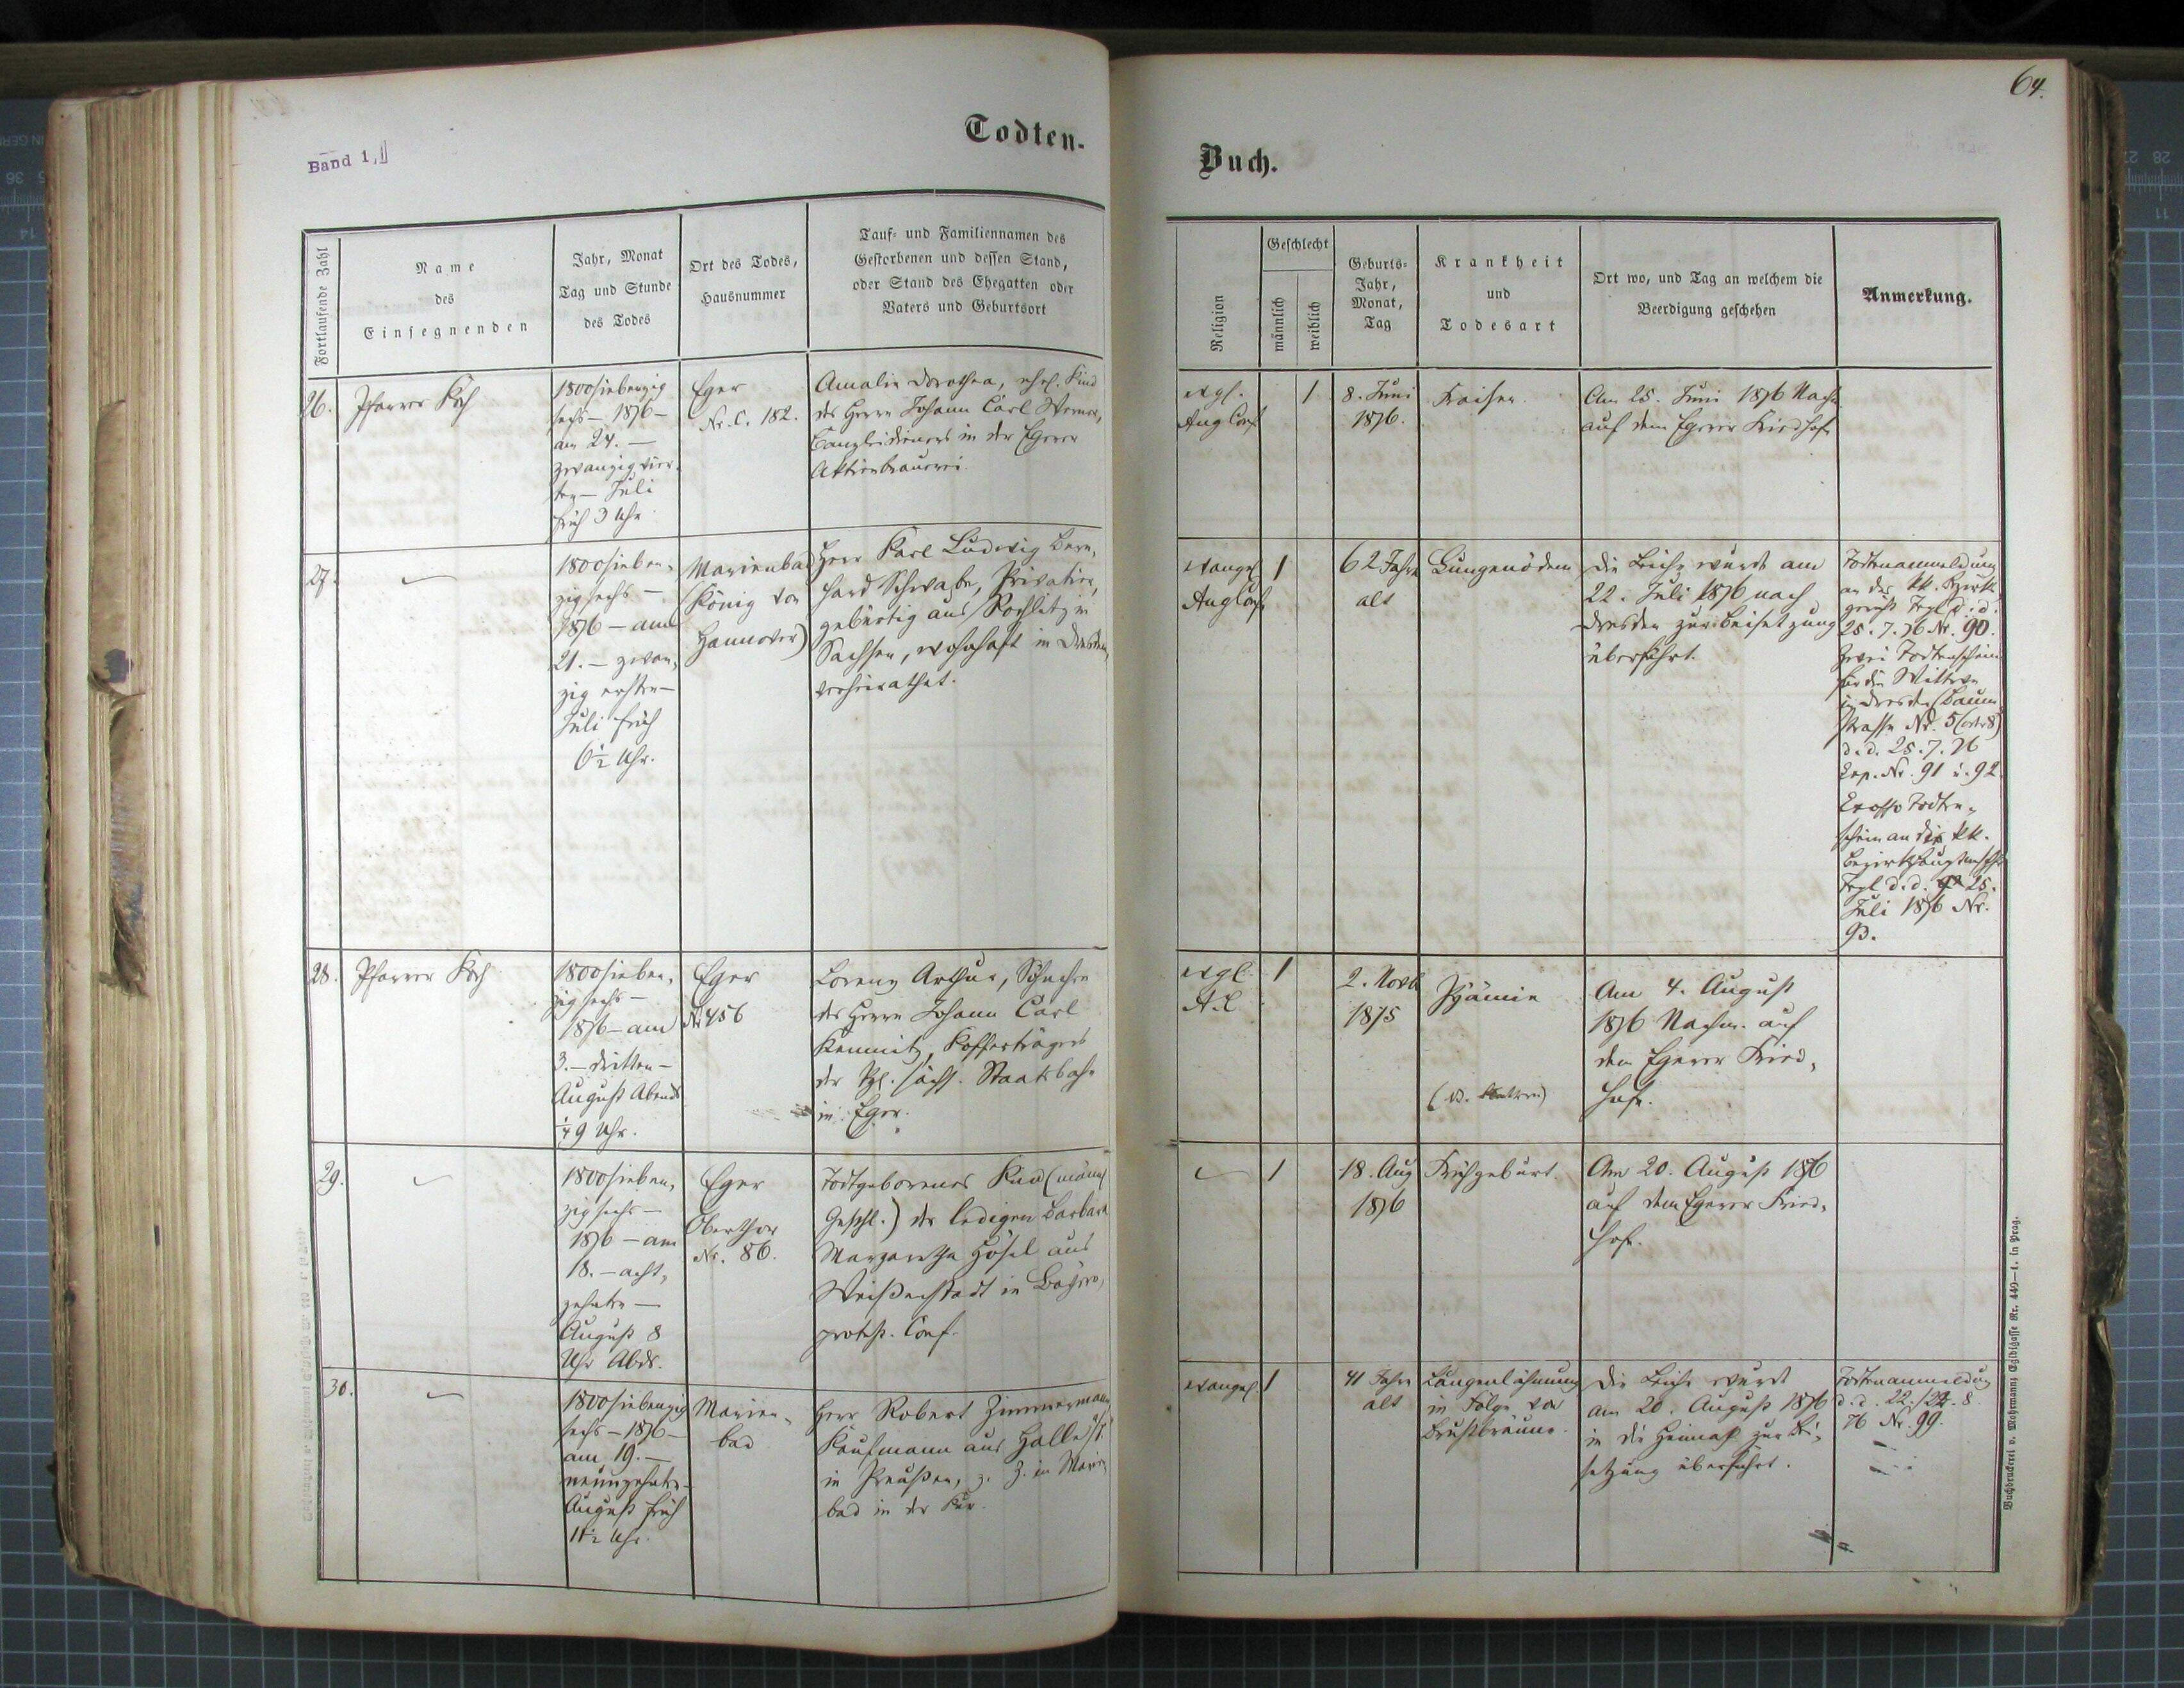 64.
Band 1,1
Todten-
Buch.
Fortlaufende Zahl
Name
des
Einsegnenden
Jahr, Monat
Tag und Stunde
des Todes
Ort des Todes,
Hausnummer
Tauf- und Familiennamen des
Gestorbenen und dessen Stand,
oder Stand des Ehegatten oder
Vaters und Geburtsort
Religion
Geschlecht
männlich
weiblich
Geburts-
Jahr,
Monat,
Tag
Krankheit
und
Todesart
Ort wo, und Tag an welchem die
Beerdigung geschehen
Anmerkung.
26.
Pfarrer Koch
1800siebenzig
sechs – 1876 –
am 24. –
zwanzig vier-
ten – Juli
früh 3 Uhr
Eger
Nr. C. 182.
Amalie Dorothea, ehel. Kind
des Herrn Johann Carl Werner,
Canzleidieners in der Egerer
Aktienbrauerei.
evgl.
Aug Conf.
1
8. Juni
1876.
Fraisen.
Am 25. Juni 1876 Nachm
auf dem Egerer Friedhofe
27.
1800sieben-
zigsechs –
1876 – am
21. – zwan-
zig ersten –
Juli früh
6 1/2 Uhr.
Marienbad
(König von
Hannover)
Herr Karl Ludwig Bern-
hard Schwabe, Privatier,
gebürtig aus Rochlitz in
Sachsen, wohnhaft in Dresden,
verheirathet.
evangel
Aug Conf.
1
62 Jahre
alt
Lungenödem
Die Leiche wurde am
22. Juli 1876 nach
Dresden zur Beisetzung
überführt.
Todtenanmeldung
an das kk. Bezirks
gericht Tepl d. d.
25. 7. 76 Nr. 90.
Zwei Todtenscheine
für die Wittwe
in Dresden (Baum
strasse Nr. 5 (oder 8)
d. d. 25. 7. 76
Exp. Nr. 91 u. 92.
Ex offo Todten-
schein an die kk.
Bezirkshauptmannsch
Tepl d. d. 25.
Juli 1876 Nr.
93.
28.
Pfarrer Koch
1800sieben-
zigsechs –
1876 – am
3. – dritten –
August Abends
1/4 9 Uhr.
Eger
Nr 456
Lorenz Arthur, Söhnchen
des Herrn Johann Carl
Kemnitz, Kofferträgers
der kgl. sächs. Staatsbahn
in Eger.
evgl.
A. C.
1
2. Novb
1875
Pyämie
Am 4. August
1876 Nachm. auf
dem Egerer Fried-
hofe.
29.
1800sieben-
zigsechs –
1876 – am
18. – acht-
zehnten –
August 8
Uhr Abds.
Eger
Oberthor
Nr. 86.
Todtgeborenes Kind (männl
Geschl.) der ledigen Barbara
Margaretha Hösel aus
Weißenstadt in Bayern,
protest. Conf.
1
18. Aug
1876
Frühgeburt.
Am 20. August 1876
auf dem Egerer Fried-
hofe.
30.
1800siebenzig
sechs – 1876 –
am 19. –
neunzehnten –
August früh
11 1/2 Uhr.
Marien-
bad
Herr Robert Zimmermann,
Kaufmann aus Halle a/S.
in Preußen, z. Z. in Marien
bad in der Kur.
evangel.
1
41 Jahre
alt
Lungenlähmung
in Folge von
Brustbräune.
Die Leiche wurde
am 20. August 1876
in die Heimat zur Bei-
setzung überführt.
Todtenanmeldung
d. d. 22./22. 8.
76 Nr. 99.
Buchdruckerei v. Mohrmann, Egidigasse Nr. 449–1. in Prag.